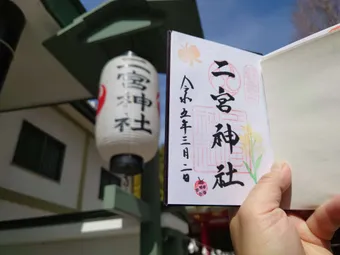 二宮神社
二宮神社
令和五年三月二日